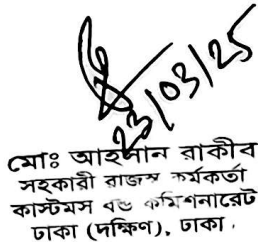 23/03/25
মোঃ আহসান রাকীব
সহকারী রাজস্ব কর্মকর্তা
কাস্টমস বন্ড কমিশনারেট
ঢাকা (দক্ষিণ), ঢাকা।